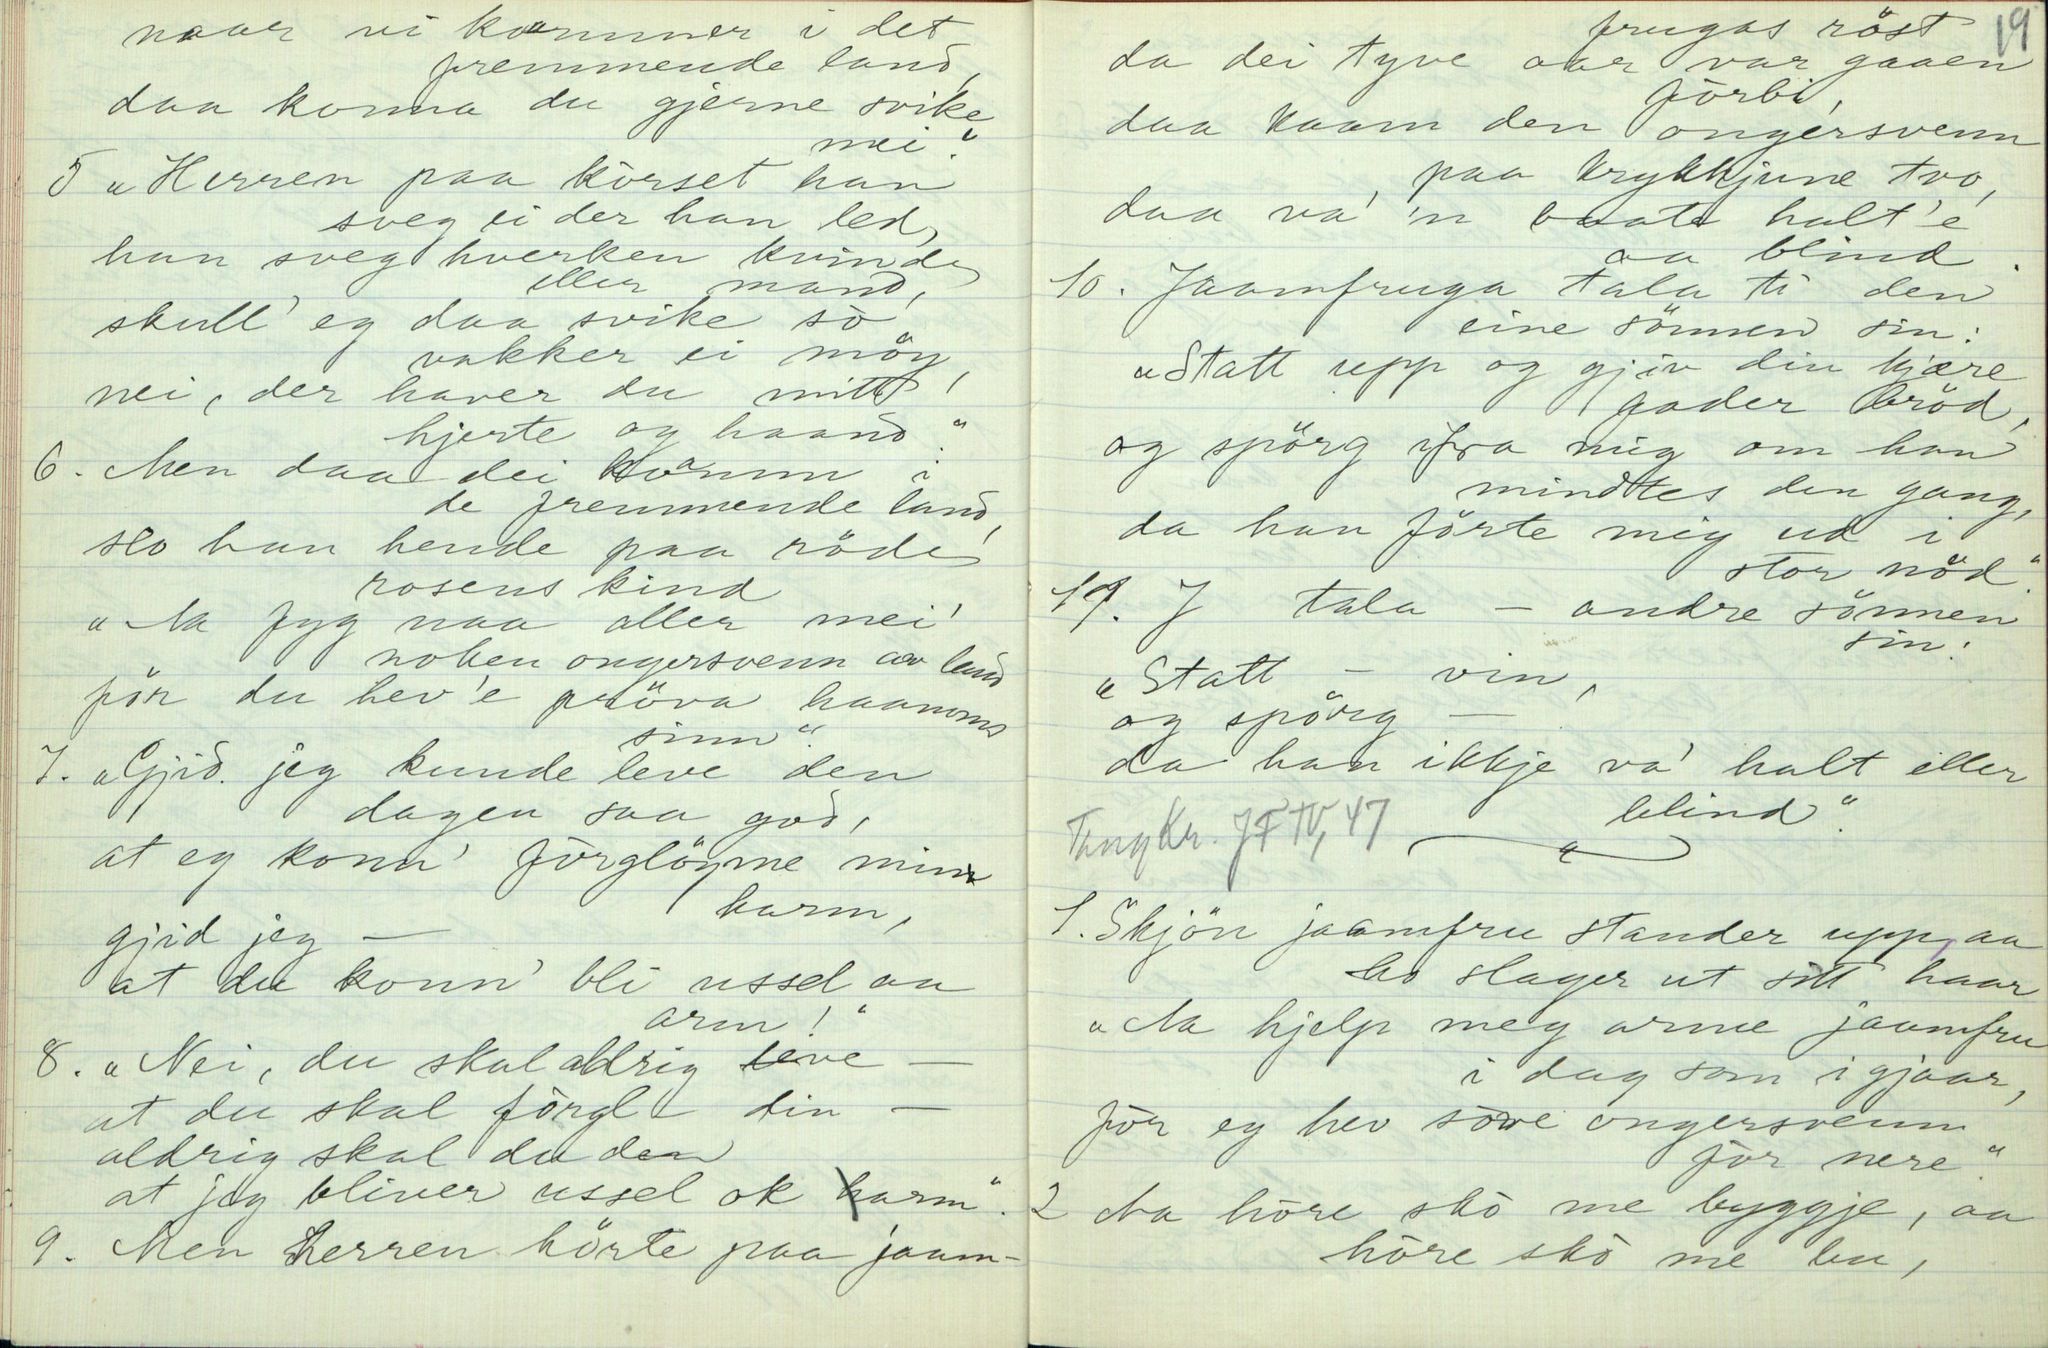 naar vi kommer i det
fremmende land,
daa konna du gjerne svike
mei."
5 „Herren paa körset han
sveg ei der han led,
han sveg hverken kvinde
eller mand,
skull' eg daa svike sò
vakker ei möy,
nei, der haver du mitt
hjerte og haand."
6. Men daa dei kvamm i
de fremmende land,
slo han hende paa röde
rosens kind
„Aa fyg naa aller mei
noken ongersvenn av land
för du hev'e pröva haanoms
sinn".
7. „Gjid jeg kunde leve den
dagen saa god,
at eg konn' förglöyme min
harm,
gjid jeg —
at du konn' bli ussel aa
arm!"
8. „Nei, du skal aldrig leve —
at du skal förgl – din —
aldrig skal du den
at jeg bliver ussel ok arm".
9. Men Herren hörte paa jaam-
19
frugas röst
da dei tyve aar var gaaen
förbi,
daa kaam den ongersvenn
paa krykkjune tvo,
daa va' 'n baate halt'e
aa blind.
10. Jaamfruga tala ti den
eine sönnen sin:
„Statt upp og gjiv din kjære
fader bröd,
og spörg ifra mig om han
mindtes den gang,
da han förte mig ud i
stor nöd".
11. J tala — andre sönnen
sin:
„Statt — vin,
og spörg —
da han ikkje va' halt eller
blind".
Tang Kr. JF IV, 47
1. Skjön jaamfru stander upp, aa
ho slager ut sitt haar
„Aa hjelp meg arme jaamfru
i dag som igjaar,
för eg hev sòve ongersvenn
för nere".
2 Aa höre skò me byggje, aa
höre skò me bu,